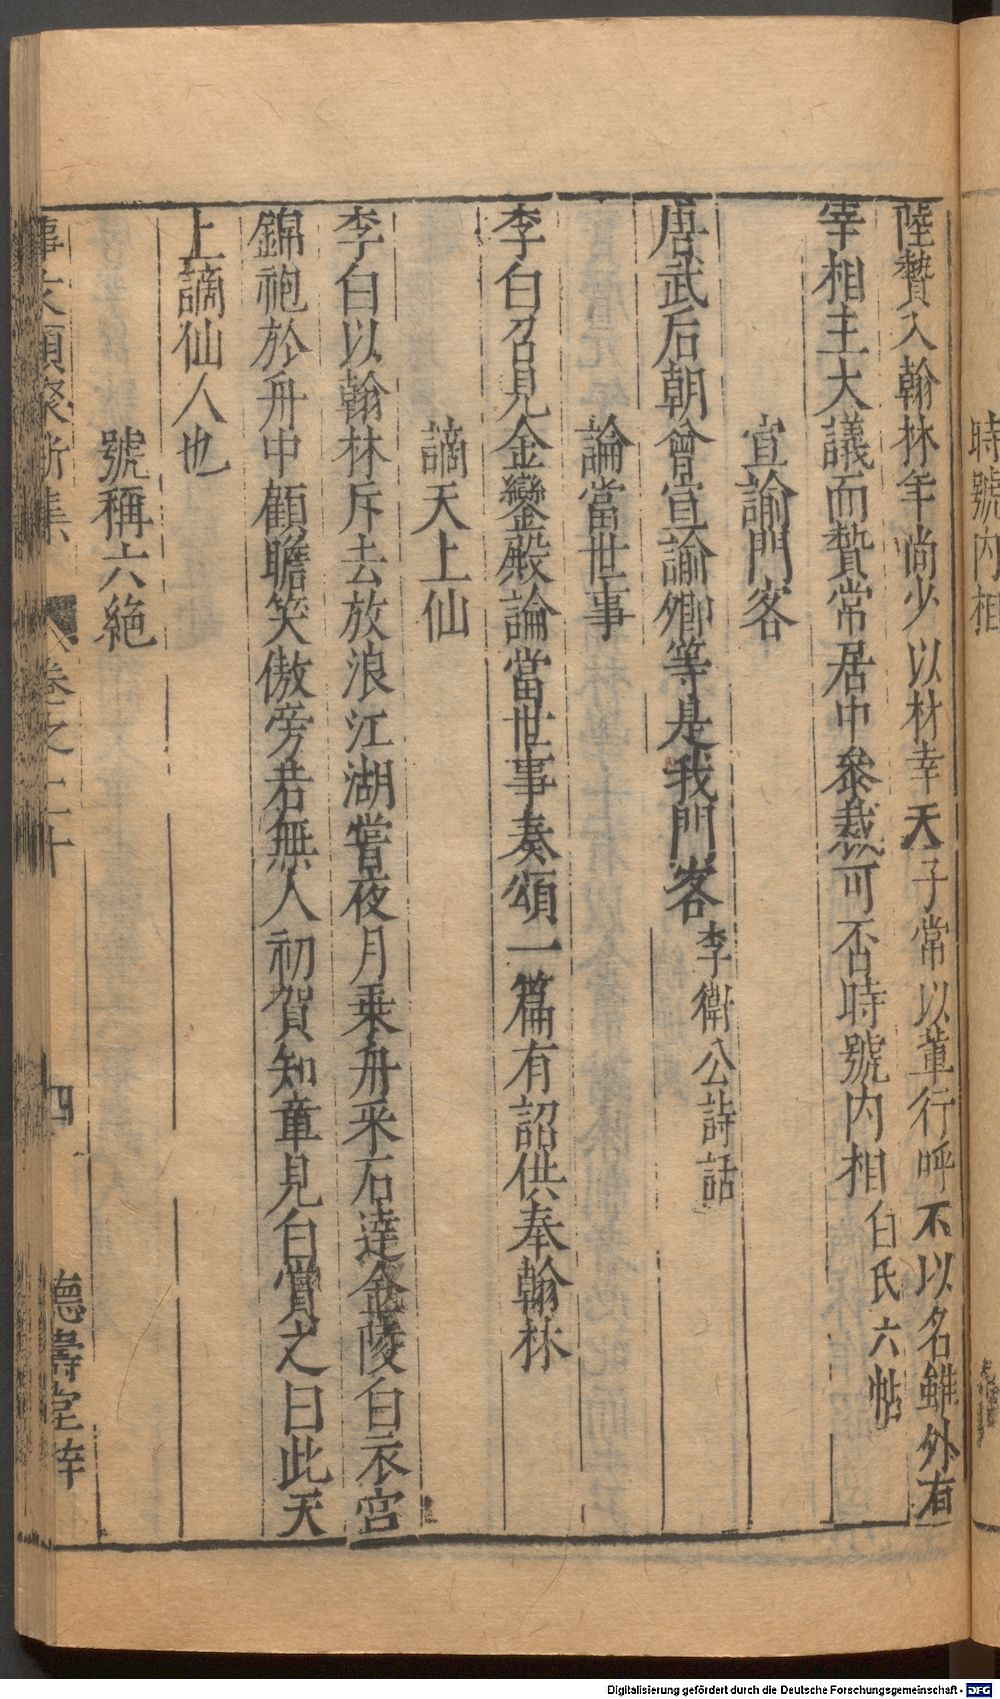 時號内相
陸贄入翰林年尚少以材幸天子常以輩行呼不以名雖外有
宰相主大議而贄常居中叅裁可否時號内相白氏六帖
宣諭門客
唐武后朝曾宣諭卿等是我門客李衛公詩話
論當世事
李白召見金鑾殿論當世事奏頌一篇有詔供奉翰林
謫天上仙
李白以翰林斥去放浪江湖嘗夜月乗舟采石達金陵白衣宫
錦袍於舟中顧瞻笑傲旁若無人初賀知章見白賞之曰此天
上謫仙人也
號稱六絶
事文類聚新集 卷之二十 四 德壽堂梓
Digitalisierung gefördert durch die Deutsche Forschungsgemeinschaft - DFG